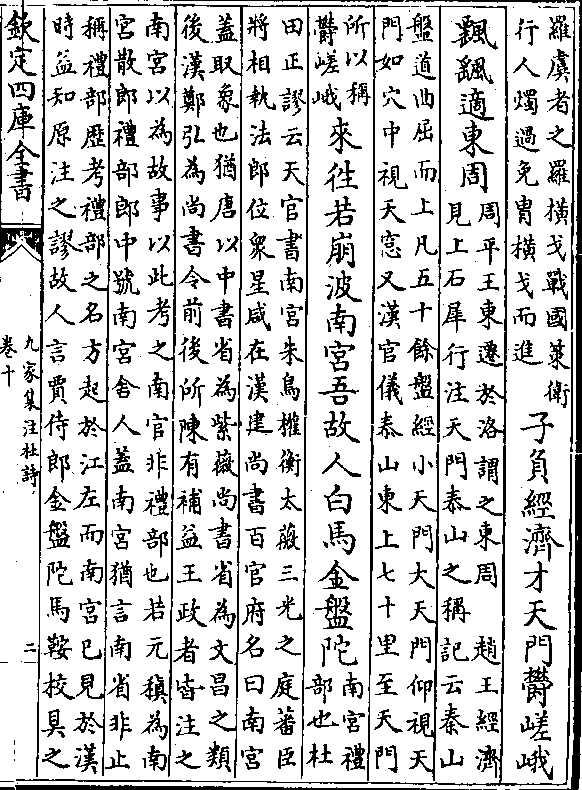 羅虞者之羅横戈戰國䇿衛
行人燭過免胄横戈而進
子負經濟才天門鬱嵯峨
飄飖適東周
周平王東遷於洛謂之東周 趙王經濟
見上石犀行注天門泰山之稱 記云泰山
盤道曲屈而上凡五十餘盤經小天門大天門仰視天
門如穴中視天窓又漢官儀泰山東上七十里至天門
所以稱
鬱嵯峨
來往若崩波南宮吾故人白馬金盤陀
南宮禮
部也杜
田正謬云天官書南宮朱鳥權衡太薇三光之庭蕃臣
將相執法郎位衆星咸在漢建尚書百官府名曰南宮
蓋取象也猶唐以中書省為紫薇尚書省為文昌之類
後漢鄭弘為尚書令前後所陳有補益王政者皆注之
南宮以為故事以此考之南官非禮部也若元稹為南
宮散郎禮部郎中號南宮舍人蓋南宮猶言南省非止
稱禮部歴考禮部之名方起於江左而南宮已見於漢
時益知原注之謬故人言賈侍郎金盤陀馬鞍校具之
欽定四庫全書
九家集注杜詩
卷十
二